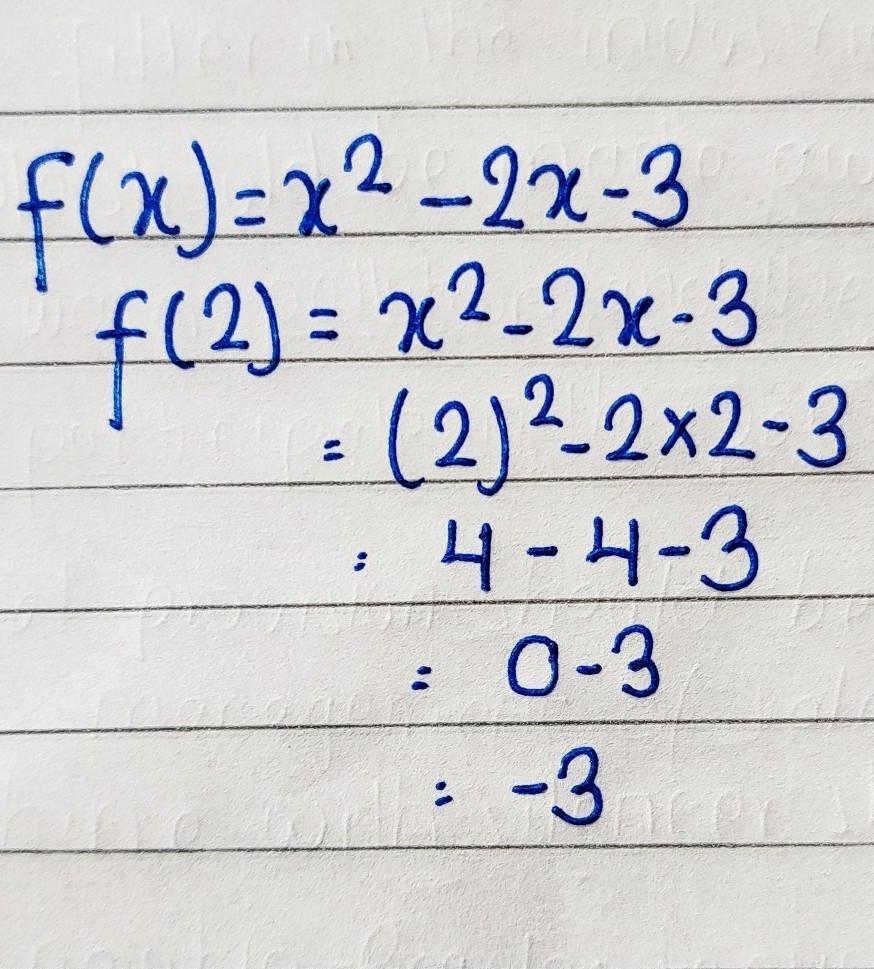 f(x)=x² -2x-3
f(2) = x²-2x-3
= (2)²-2×2-3
= 4-4-3
= 0-3
= -3